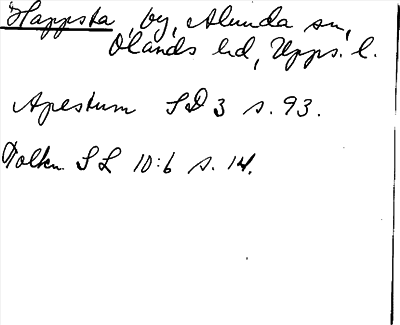 Happsta, by, Alunda sn,
Olands hd, Upps. l.
Apestum SD 3 s. 93.
Tolkn. SL 10:6 s. 14.